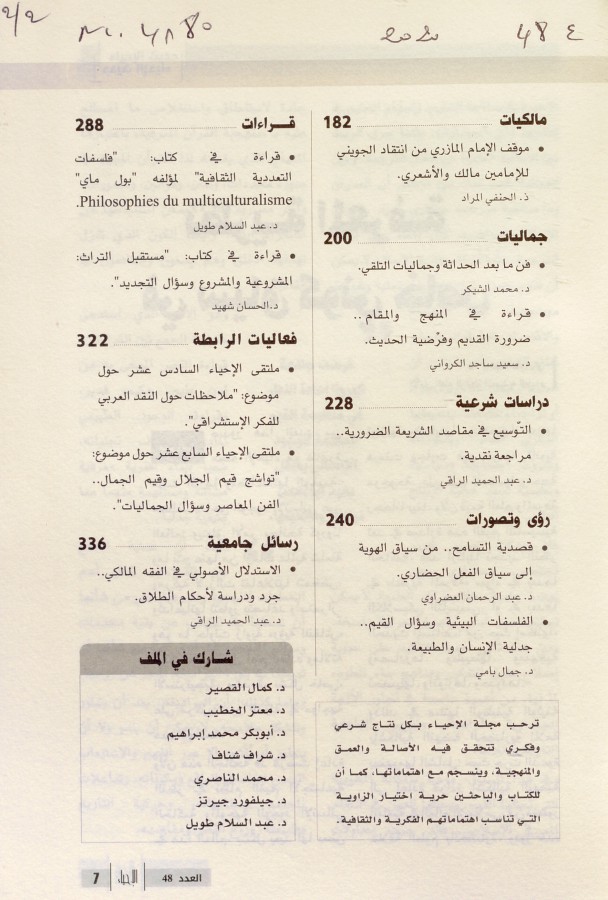 2/2
2020
48 ع
مالكيات 182
• موقف الإمام المازري من انتقاد الجويني
للإمامين مالك والأشعري.
ذ. الحنفي المراد
جماليات 200
• فن ما بعد الحداثة وجماليات التلقي.
د. محمد الشيكر
• قراءة في المنهج والمقام ..
ضرورة القديم وفرْضية الحديث.
د. سعيد ساجد الكرواني
دراسات شرعية 228
• التّوسيع في مقاصد الشريعة الضرورية..
مراجعة نقدية.
د. عبد الحميد الراقي
رؤى وتصورات 240
• قصدية التسامح.. من سياق الهوية
إلى سياق الفعل الحضاري.
د. عبد الرحمان العضراوي
• الفلسفات البيئية وسؤال القيم..
جدلية الإنسان والطبيعة.
د. جمال بامي
ترحب مجلة الإحياء بكل نتاج شرعي
وفكري تتحقق فيه الأصالة والعمق
والمنهجية، وينسجم مع اهتماماتها، كما أن
للكتاب والباحثين حرية اختيار الزاوية
التي تناسب اهتماماتهم الفكرية والثقافية.
قـــراءات 288
• قراءة في كتاب: "فلسفات
التعددية الثقافية" لمؤلفه "بول ماي"
Philosophies du multiculturalisme.
د. عبد السلام طويل
• قراءة في كتاب: "مستقبل التراث:
المشروعية والمشروع وسؤال التجديد".
د.الحسان شهيد
فعاليات الرابطة 322
• ملتقى الإحياء السادس عشر حول
موضوع: "ملاحظات حول النقد العربي
للفكر الإستشراقي".
• ملتقى الإحياء السابع عشر حول موضوع:
"تواشج قيم الجلال وقيم الجمال..
الفن المعاصر وسؤال الجماليات".
رسائل جامعية 336
• الاستدلال الأصولي في الفقه المالكي..
جرد ودراسة لأحكام الطلاق.
د. عبد الحميد الراقي
شارك في الملف
د. كمال القصير
د. معتز الخطيب
د. أبوبكر محمد إبراهيم
د. شراف شناف
د. محمد الناصري
د. جيلفورد جيرتز
د. عبد السلام طويل
العدد 48 الإحياء 7